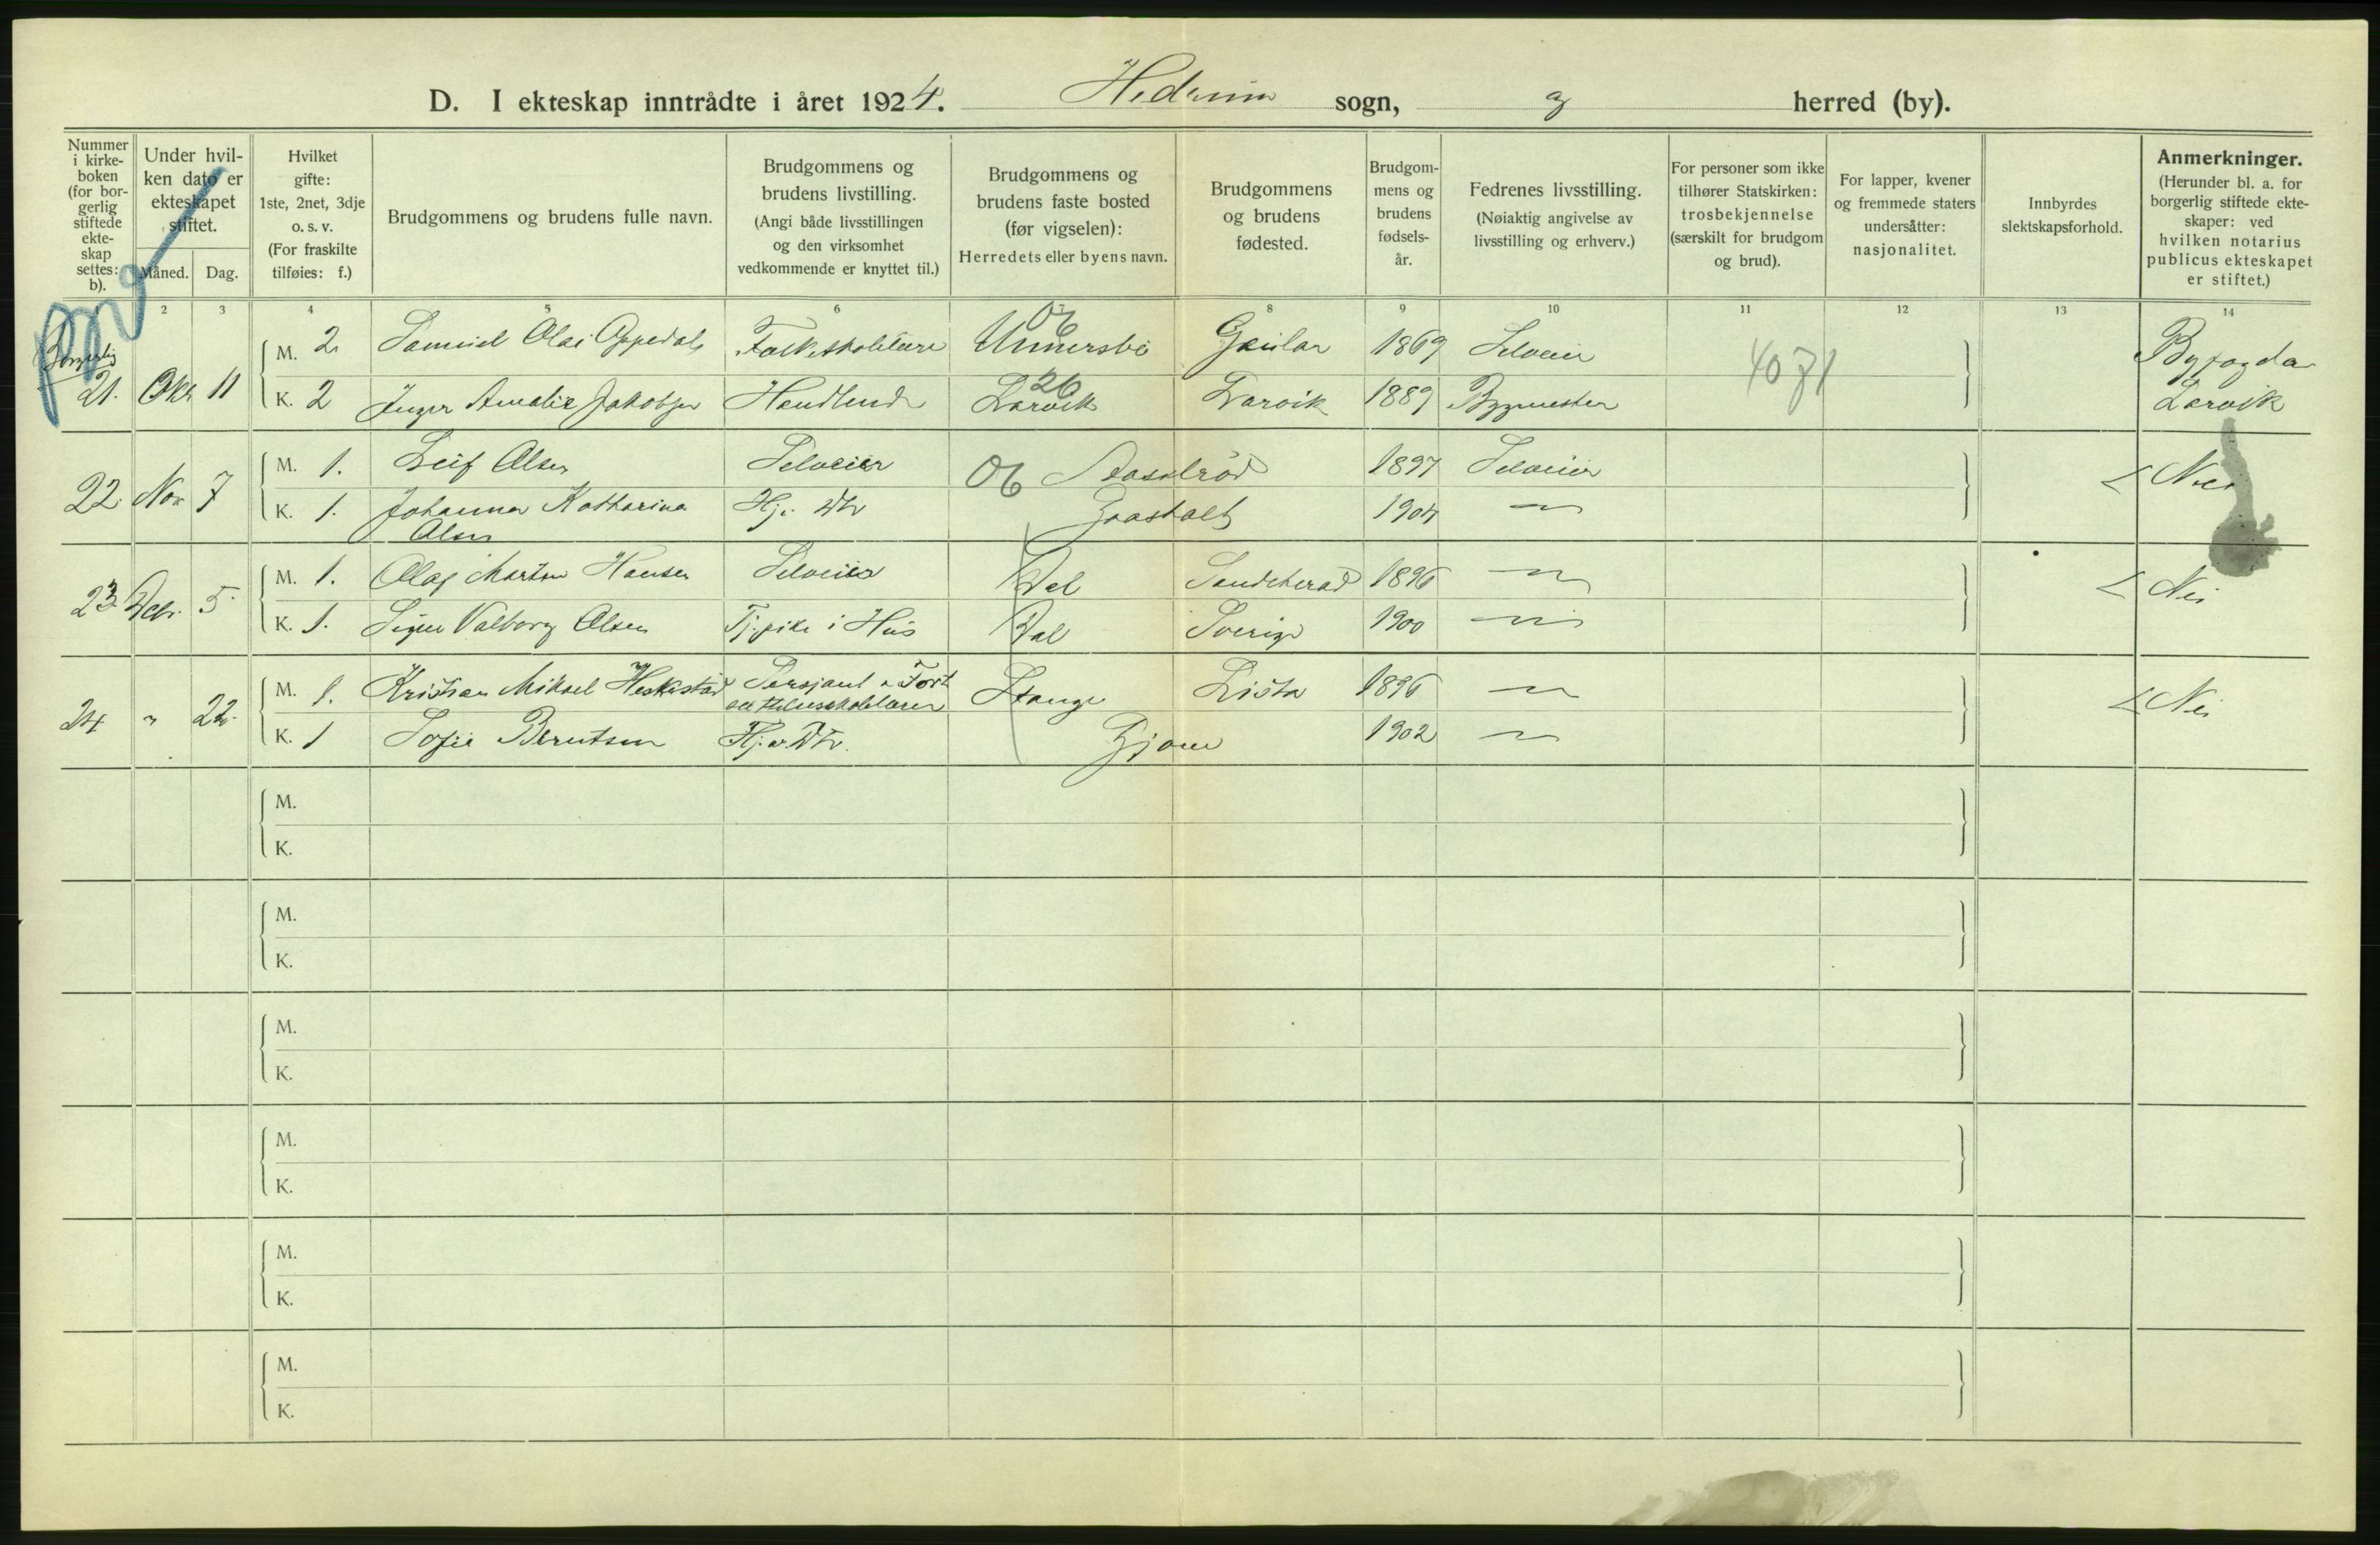 D. I ekteskap inntrådte i året 1924. Hedrum sogn, og herred (by).
Nummer i kirkeboken (for borgerlig stiftede ekteskap settes: b).
Under hvilken dato er ekteskapet stiftet.
Måned. Dag.
Hvilket gifte: 1ste, 2net, 3dje o. s. v. (For fraskilte tilføies: f.)
Brudgommens og brudens fulle navn.
Brudgommens og brudens livstilling. (Angi både livsstillingen og den virksomhet vedkommende er knyttet til.)
Brudgommens og brudens faste bosted (før vigselen): Herredets eller byens navn.
Brudgommens og brudens fødested.
Brudgommens og brudens fødselsår.
Fedrenes livsstilling. (Nøiaktig angivelse av livsstilling og erhverv.)
For personer som ikke tilhører Statskirken: trosbekjennelse (særskilt for brudgom og brud).
For lapper, kvener og fremmede staters undersåtter: nasjonalitet.
Innbyrdes slektskapsforhold.
Anmerkninger. (Herunder bl. a. for borgerlig stiftede ekteskaper: ved hvilken notarius publicus ekteskapet er stiftet.)
2 3 4 5 6 7 8 9 10 11 12 13 14
Borgerlig
06
M. 2 Samuel Olai Oppedal Folkeskolelærer Gaular 1869 Selveier Byfogda
21. Okt 11
26
K. 2 Inger Amalie Jakobsen Handlende Larvik Larvik 1889 Bygmester Larvik
M. 1. Leif Olsen Selveier 06 1897 Selveier Nei
22. Nov 7
K. 1. Johanna Katharina Olsen Hj. 1904 — " —
M. 1. Olaf Martin Hansen Selveier Sandeherad 1896 — " — Nei
23 Dcbr. 5
K. 1. Signe Valborg Olsen Tj.pike i Hus Sverige 1900 — " —
M. 1. Kristian Mikael Heskestad Sersjant Stange Lista 1896 — " — Nei
24 " 22.
K. 1 Sofie Berntsen Gjone 1902 — " —
M.
K.
M.
K.
M.
K.
M.
K.
M.
K.
M.
K.